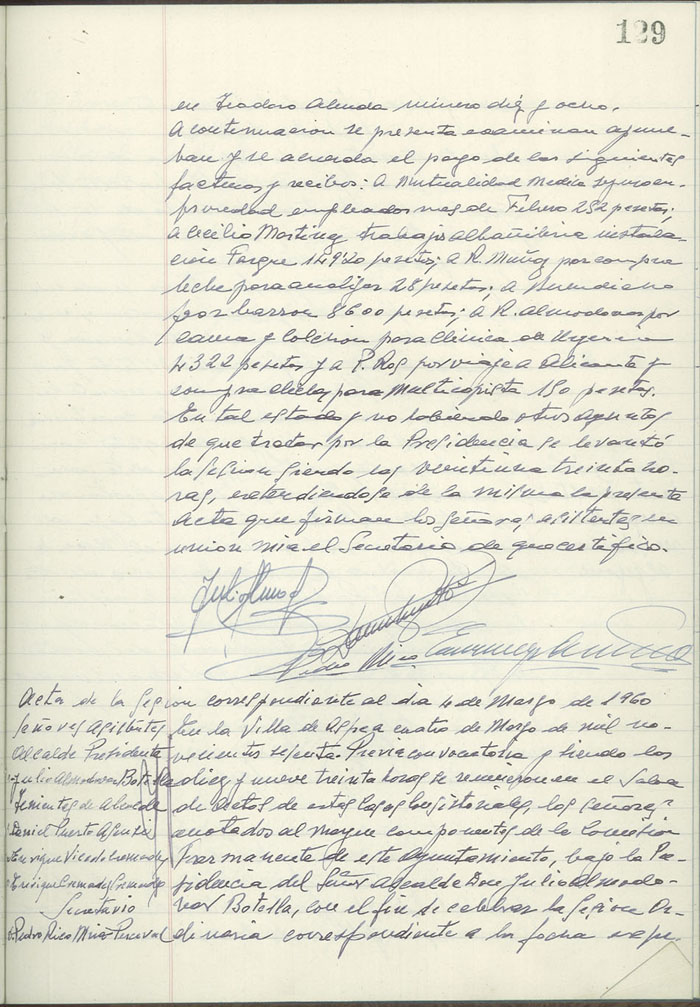 129
en Teodoro Alenda número diez y ocho.
A continuacion se presenta examinan aprue-
ban y se acuerda el pago de las siguientes
facturas y recibos: A Mutualidad Medica
empleados mes de Febrero 252 pesetas;
a Cecilio Martinez trabajos albañileria instala-
ción Parque 149'20 pesetas; a R. Muñoz por compra
leche para analisis 28 pesetas; a
por 8600 pesetas; a R. Almodovar por
cama y colchon para Clinica de Urgencia
4322 pesetas y a P. Ros por viaje a Alicante y
compra clichés para Multicopista 150 pesetas.
En tal estado y no habiendo otros asuntos
de que tratar por la Presidencia se levantó
la sesion siendo las veintiuna treinta ho-
ras, extendiendose de la misma la presente
acta que firman los señores asistentes en
union mia el Secretario de que certifico.
Pedro Rico
Acta de la sesion correspondiente al dia 4 de Marzo de 1960
Señores Asistentes
Alcalde Presidente
Julio Almodovar Botella
Tenientes de Alcalde
Daniel Puerto Asensi
Enrique Vicedo Cremades
Enrique Cremades Cremades
Secretario
Pedro Rico Mira-Perceval
En la Villa de Aspe a cuatro de Marzo de mil no-
vecientos sesenta. Previa convocatoria y siendo las
diez y nueve treinta horas se reunieron en el Salon
de Actos de estas Casas Consistoriales, los señores
anotados al margen componentes de la Comision
Permanente de este Ayuntamiento, bajo la Pre-
sidencia del Señor Alcalde Don Julio Almodo-
var Botella, con el fin de celebrar la sesion Or-
dinaria correspondiente a la fecha